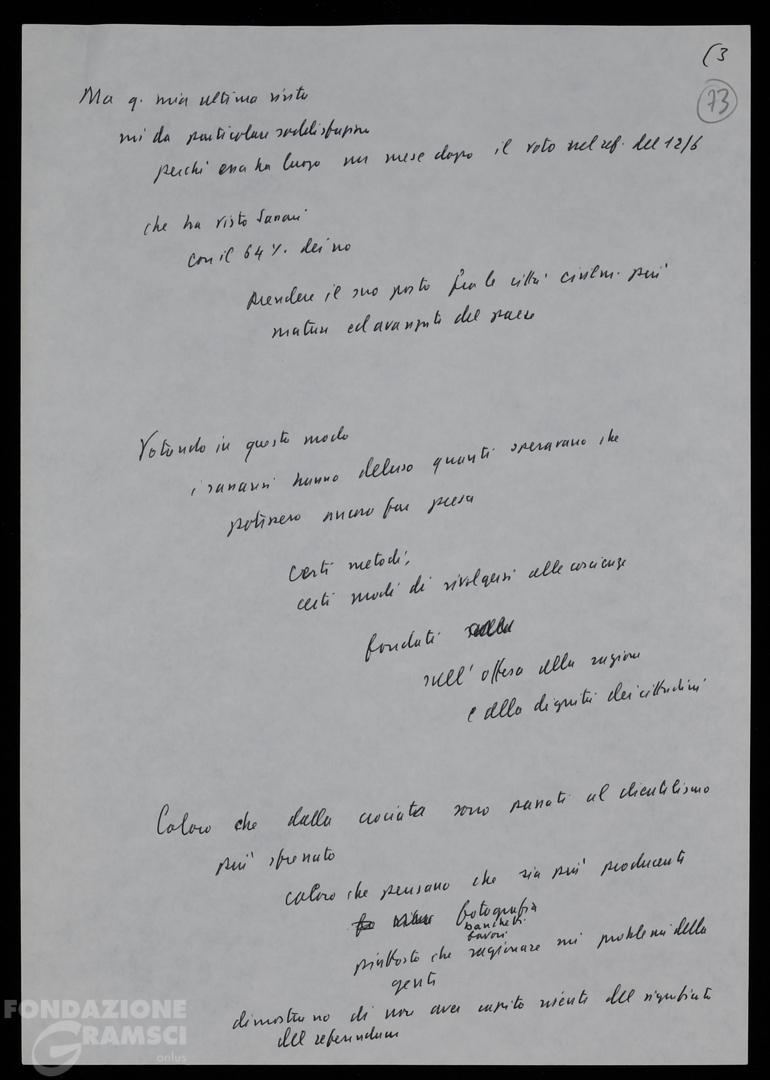 (3
73
Ma q. mia ultima visita
mi da particolare soddisfazione
perché essa ha luogo un mese dopo il voto nel ref. del 12/6
che ha visto Sassari
con il 64%. dei no
prendere il suo posto fra le città civilm. più
mature ed avanzate del paese
Votando in questo modo
i sassaresi hanno deluso quanti speravano che
potessero ancora fare presa
certi metodi,
certi modi di rivolgersi alle coscienze
fondati
sull'offesa alla ragione
e alla dignità dei cittadini
Coloro che dalla crociata sono passati al clientelismo
più sfrenato
coloro che pensano che sia più producente
fotografia
banchetti
favori
piuttosto che ragionare sui problemi della
gente
dimostrano di non aver capito niente del significato
del referendum
FONDAZIONE
GRAMSCI
onlus